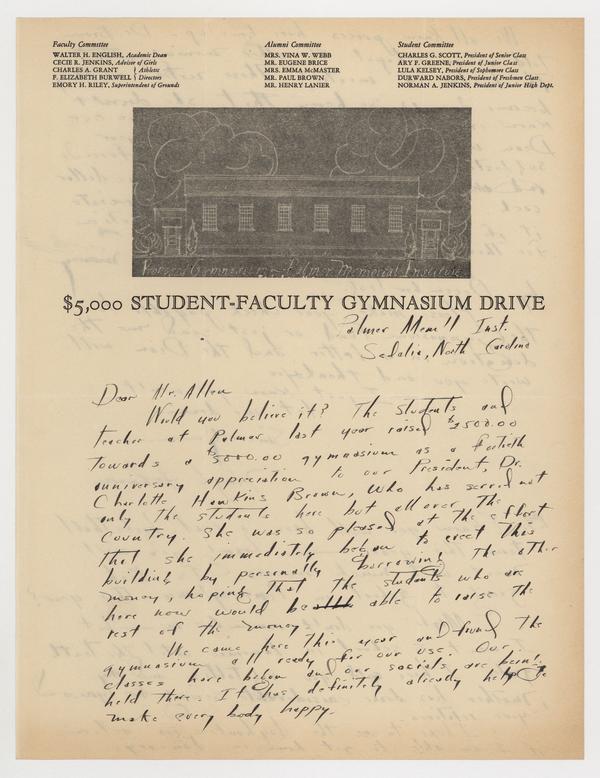 Faculty Committee
WALTER H. ENGLISH, Academic Dean
CECIE R. JENKINS, Advisor of Girls
CHARLES A. GRANT } Athletic
F. ELIZABETH BURWELL } Directors
EMORY H. RILEY, Superintendent of Grounds
Alumni Committee
MRS. VINA W. WEBB
MR. EUGENE BRICE
MRS. EMMA McMASTER
MR. PAUL BROWN
MR. HENRY LANIER
Student Committee
CHARLES G. SCOTT, President of Senior Class
ARY F. GREENE, President of Junior Class
LULA KELSEY, President of Sophomore Class
DURWARD NABORS, President of Freshmen Class
NORMAN A. JENKINS, President of Junior High Dept.
Proposed Gymnasium for Palmer Memorial Institute
$5,000 STUDENT-FACULTY GYMNASIUM DRIVE
Palmer Mem'll Inst.
Sedalia, North Carolina
Dear Mr. Allen
Would you believe it? The students and
teacher at Palmer last year raised $2500.00
towards a $5000.00 gymnasium as a fortieth
anniversary appreciation to our President, Dr.
Charlotte Hawkins Brown, who has served not
only the students here but all over the
Country. She was so pleased at the effort
that she immediately began to erect this
building by personally borrowing the other
money, hoping that the students who are
here now would be able to raise the
rest of the money.
We came here this year and found the
gymnasium all ready for our use. Our
classes have begun and our socials are being
held there. It has definitely already helped to
make every body happy.